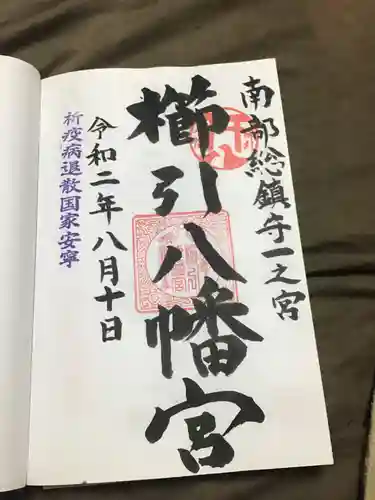 南部総鎮守一之宮
櫛引八幡宮
令和二年八月十日
祈疫病退散国家安寧